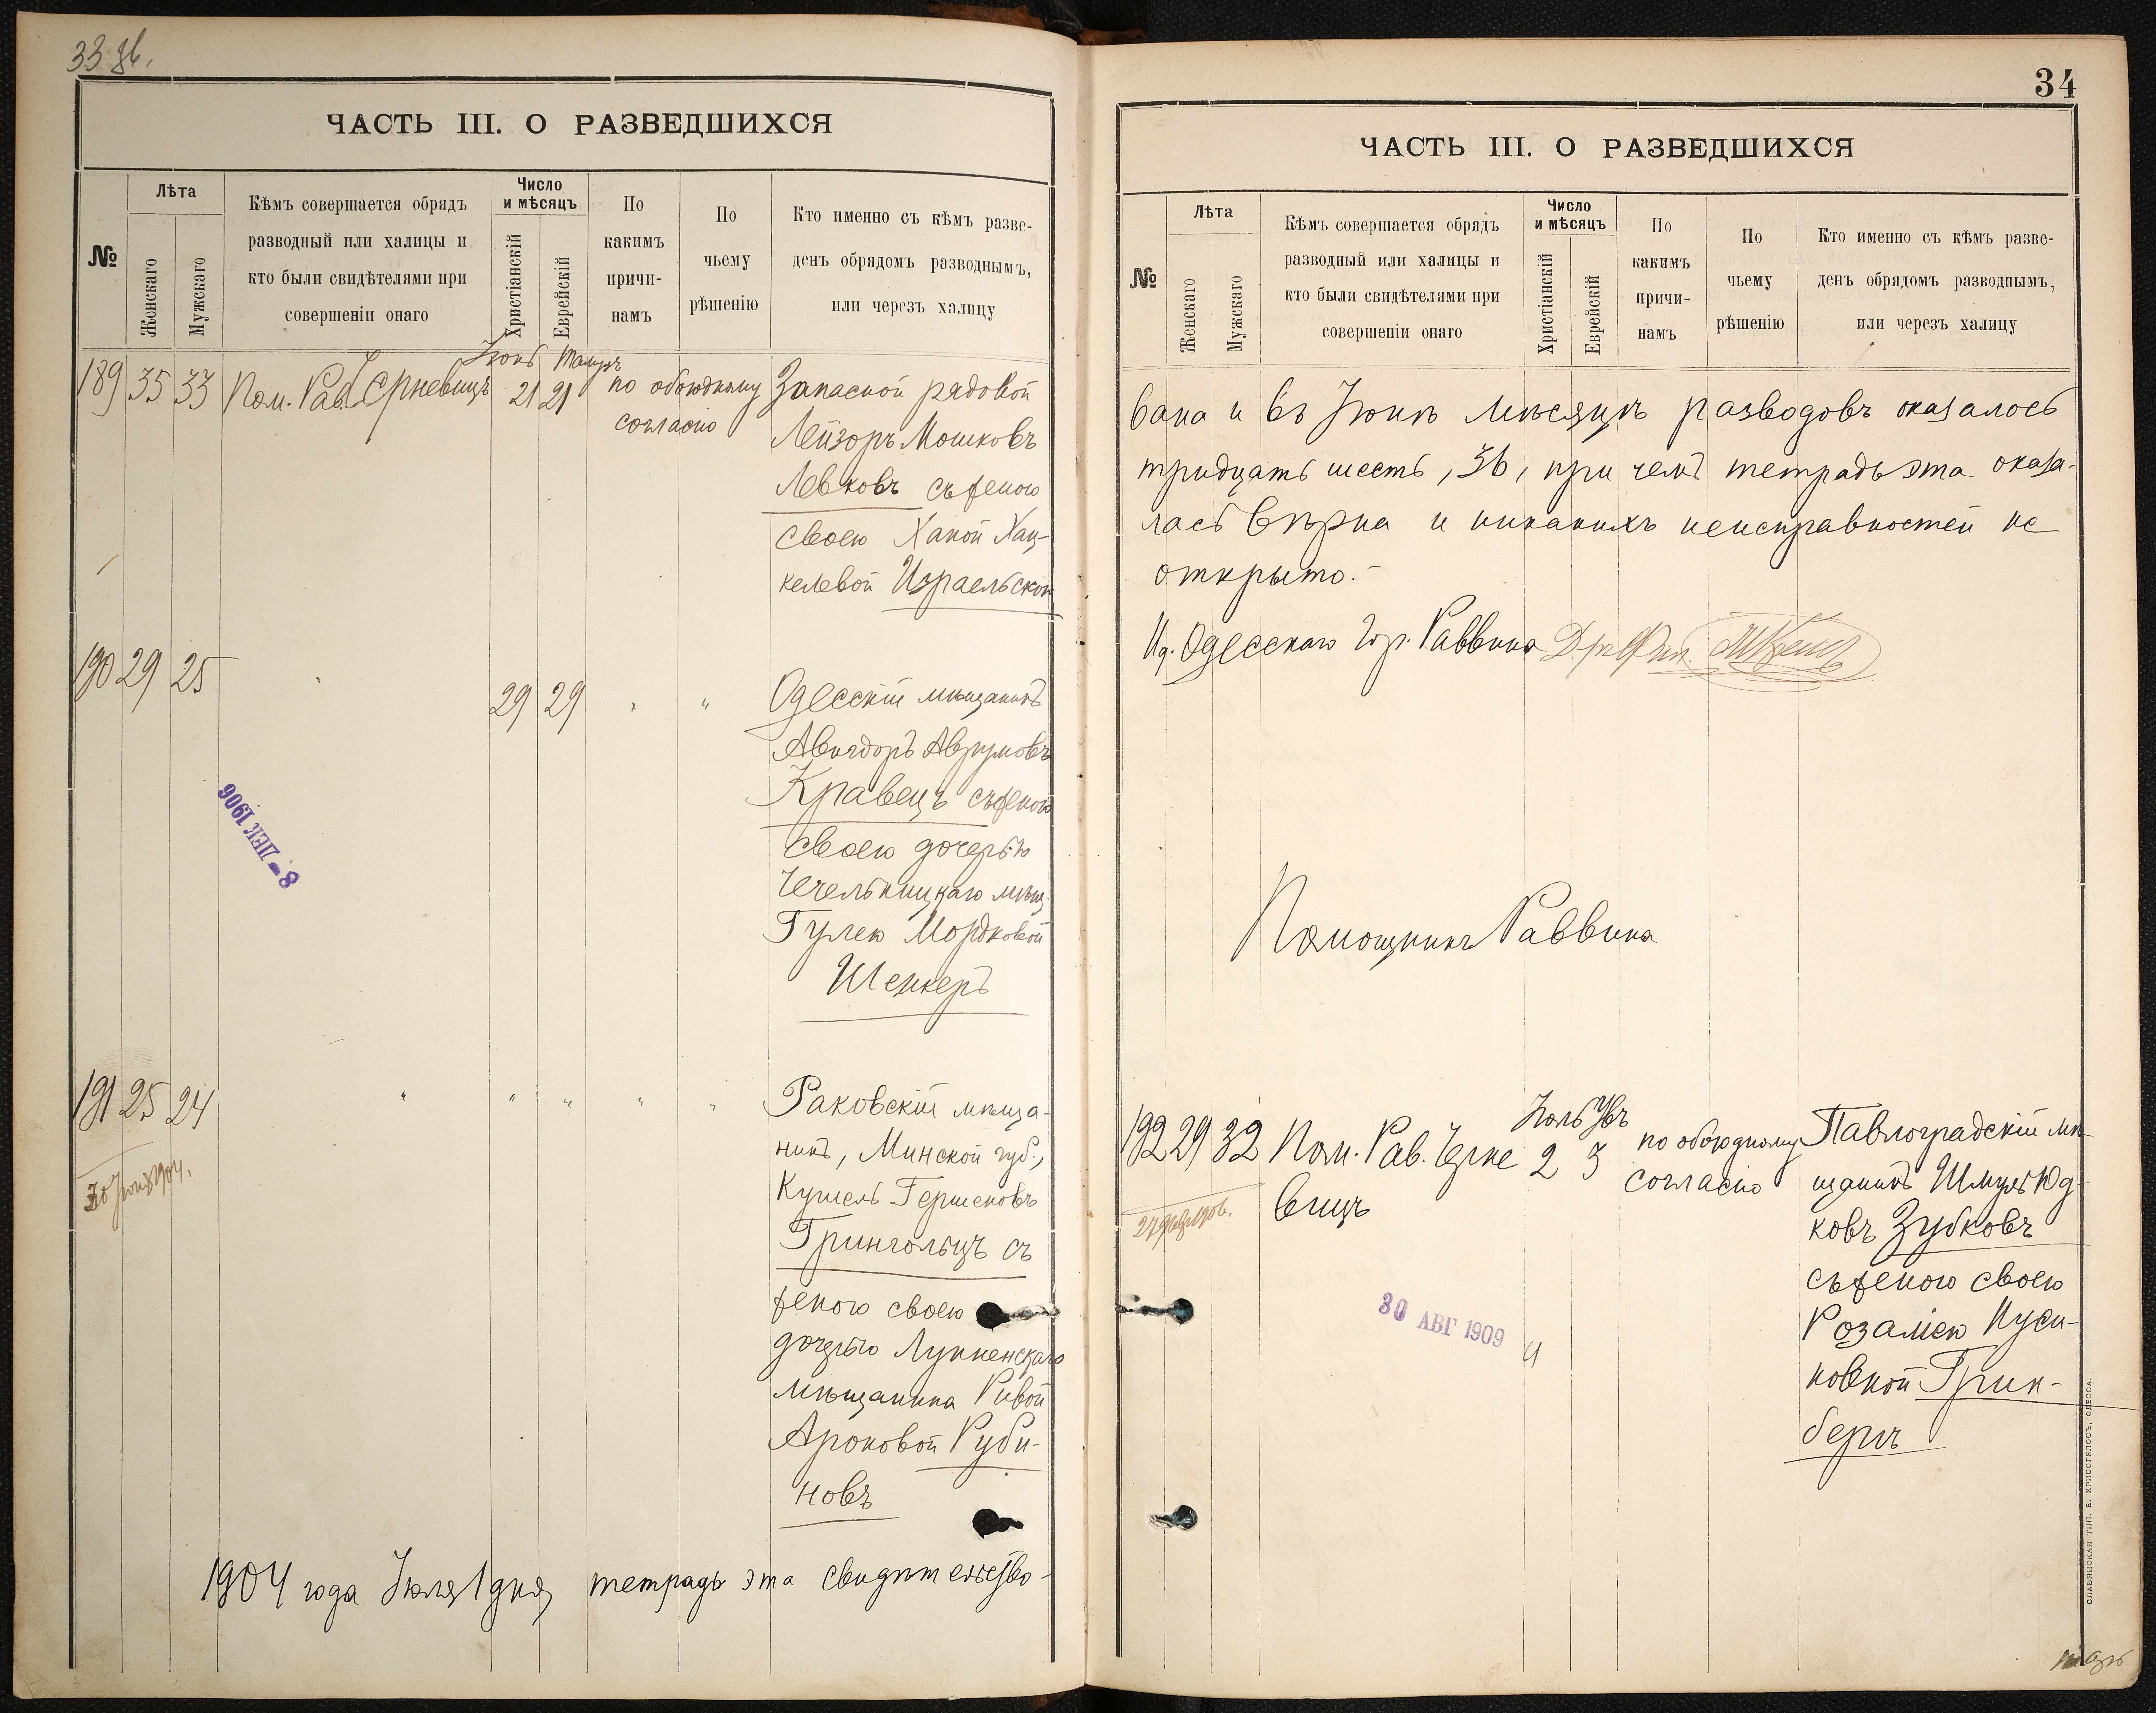 33 об.
ЧАСТЬ III. О РАЗВЕДШИХСЯ
№
Лѣта
Женскаго
Мужскаго
Кѣмъ совершается обрядъ
разводный или халицы и
кто были свидѣтелями при
совершеніи онаго
Число
и мѣсяцъ
Христіанскій
Еврейскій
По
какимъ
причи-
намъ
По
чьему
рѣшенію
Кто именно съ кѣмъ разве-
денъ обрядомъ разводнымъ,
или черезъ халицу
Іюнь Тамузъ
189 35 33 Пом. Рав. 21 21 по обоюдному
согласію
Запасной рядовой
Лейзоръ Мошковъ
Левковъ съ женою
своею Ханой Хац-
келевой Израельской
190 29 25 29 29 " "
Одесскій мѣщанинъ
Авигдоръ Аврумовъ
Кравецъ съ женою
своею дочерью
Чечельницкаго мѣщ.
Гулею Мордковой
Шенкеръ
8 - ДЕК 1906
191 25 24 " " " " "
30 Іюня 1904.
Раковскій мѣща-
нинъ, Минской губ.,
Кушель Гершеновъ
Грингольцъ съ
женою своею
дочерью
мѣщанина Ривой
Ароновой Руби-
новъ
1904 года Іюля 1 дня, тетрадь эта свидѣтельство-
34
ЧАСТЬ III. О РАЗВЕДШИХСЯ
№
Лѣта
Женскаго
Мужскаго
Кѣмъ совершается обрядъ
разводный или халицы и
кто были свидѣтелями при
совершеніи онаго
Число
и мѣсяцъ
Христіанскій
Еврейскій
По
какимъ
причи-
намъ
По
чьему
рѣшенію
Кто именно съ кѣмъ разве-
денъ обрядомъ разводнымъ,
или черезъ халицу
вана и въ Іюнѣ мѣсяцѣ разводовъ оказалось
тридцать шесть, 36, при чемъ тетрадь эта оказа-
лась вѣрна и никакихъ неисправностей не
открыто.-
И.д. Одесскаго Гор. Раввина Д-ръ Фил.
Помощникъ Раввина
Іюль
192 29 32 Пом. Рав. Черне 2 3 по обоюдному
вицъ
согласію
Павлоградскій мѣ-
щанинъ Шмуль Юд-
ковъ Зубковъ
съ женою своею
Розаліею Нуси-
новной Грин-
бергъ
30 АВГ 1909
СЛАВЯНСКАЯ ТИП. Е. ХРИСОГЕЛОСЪ, ОДЕССА.